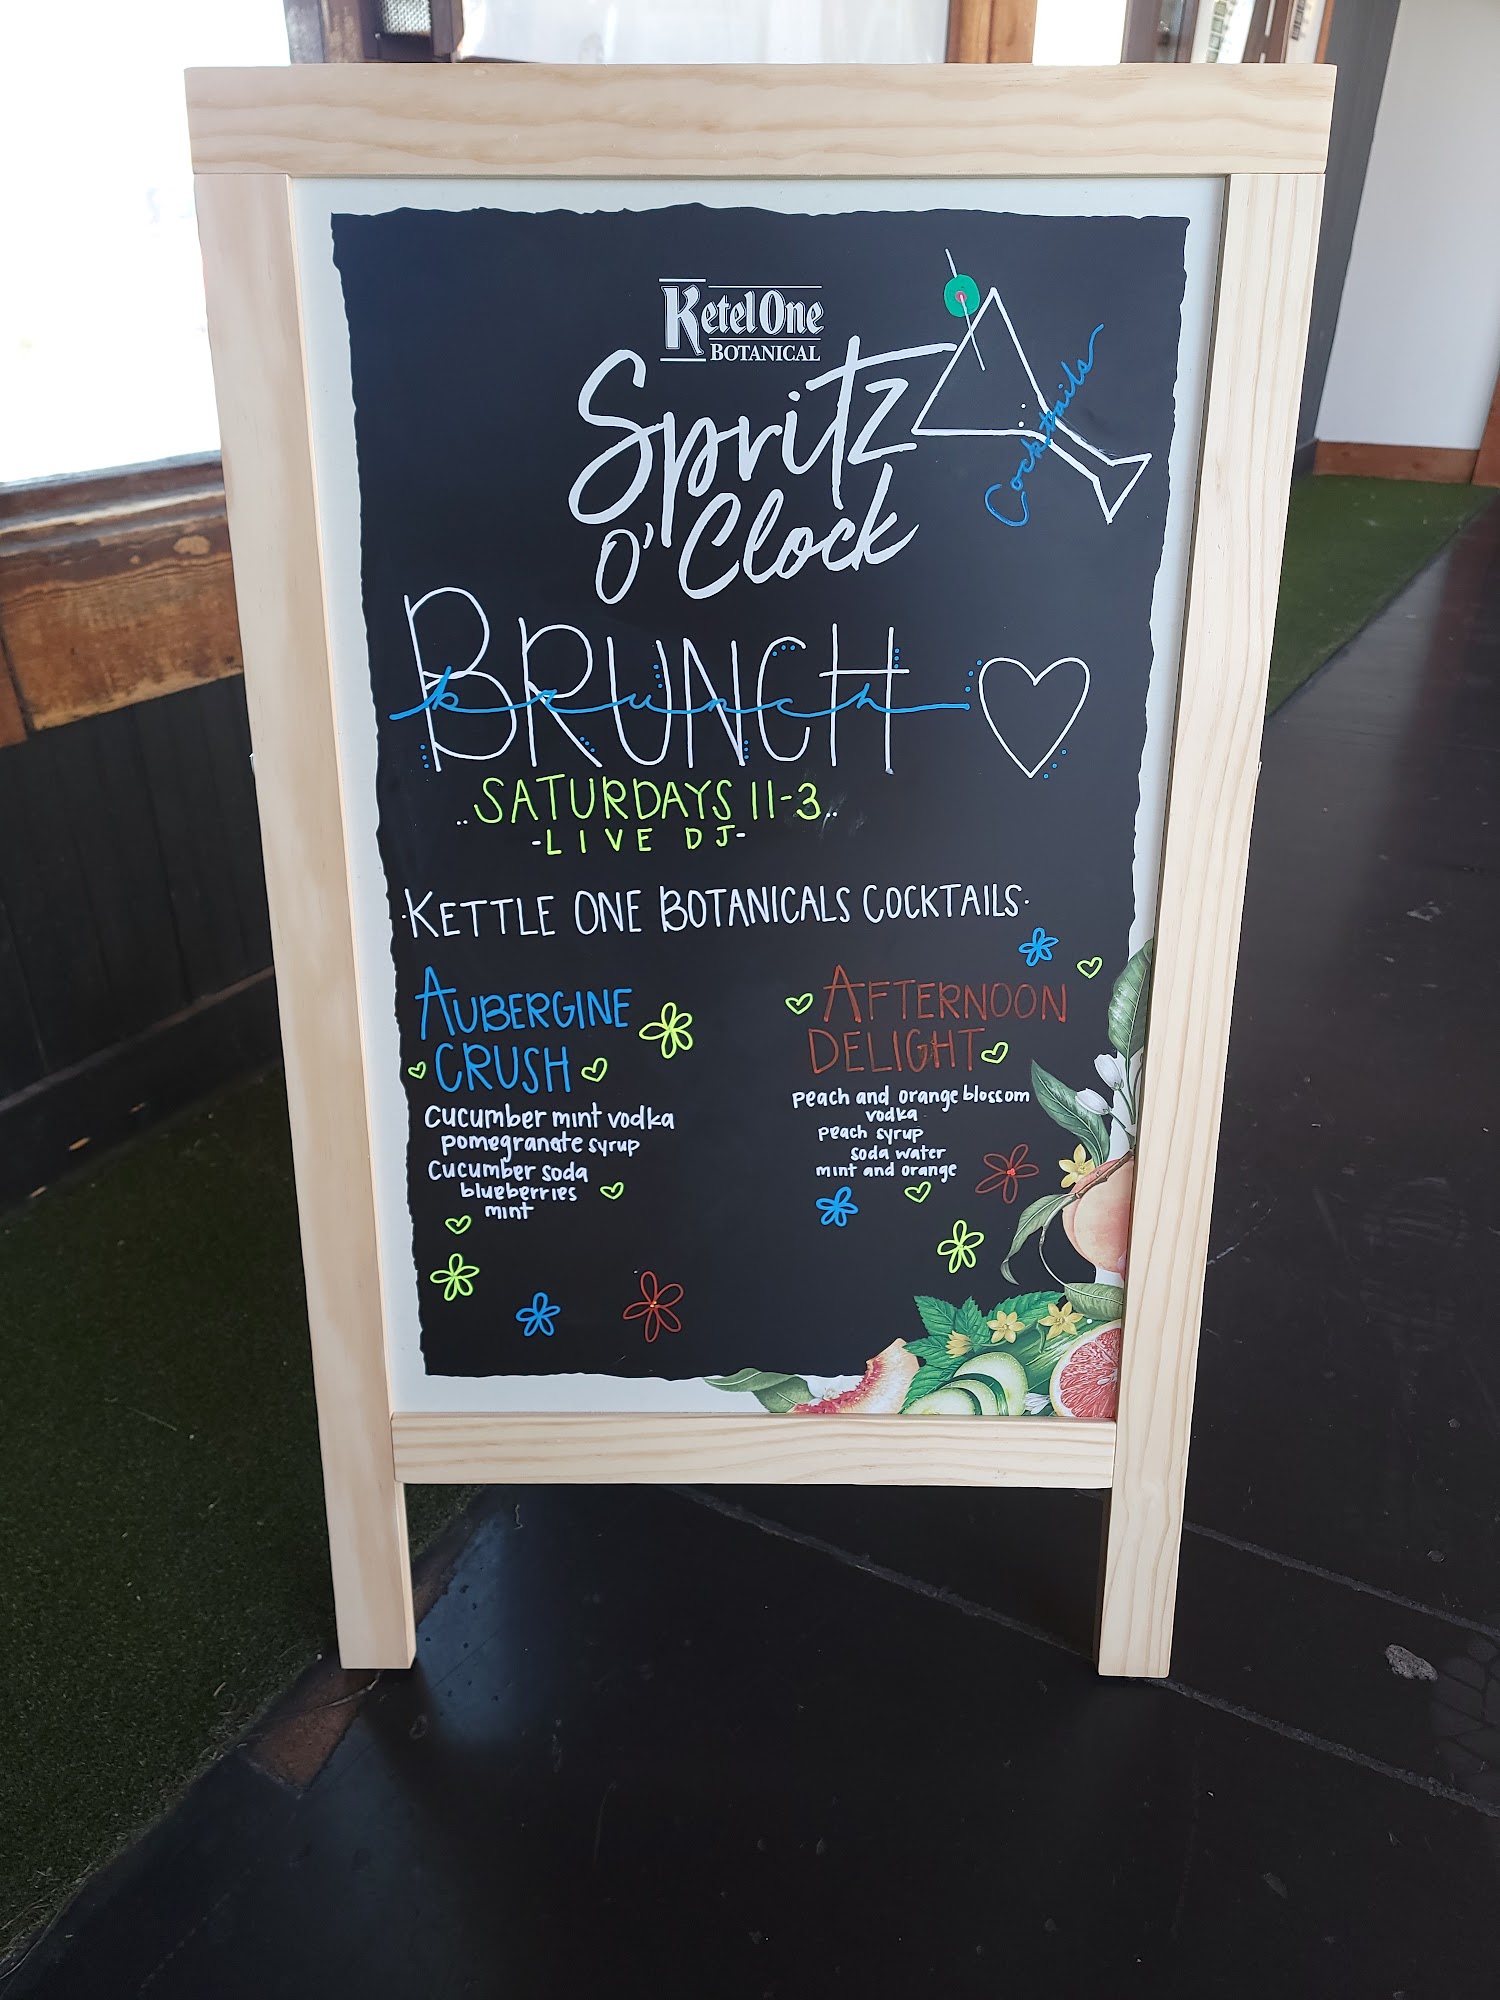 Ketel One
BOTANICAL
Spritz
O'Clock
Cocktails
BRUNCH
brunch
..SATURDAYS 11-3..
-LIVE DJ-
·KETTLE ONE BOTANICALS COCKTAILS·
AUBERGINE
CRUSH
cucumber mint vodka
pomegranate syrup
cucumber soda
blueberries
mint
AFTERNOON
DELIGHT
peach and orange blossom
vodka
peach syrup
soda water
mint and orange